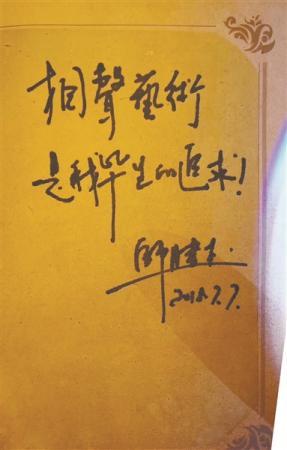 相聲藝術
是我毕生的追求!
师胜杰
2018.7.7.